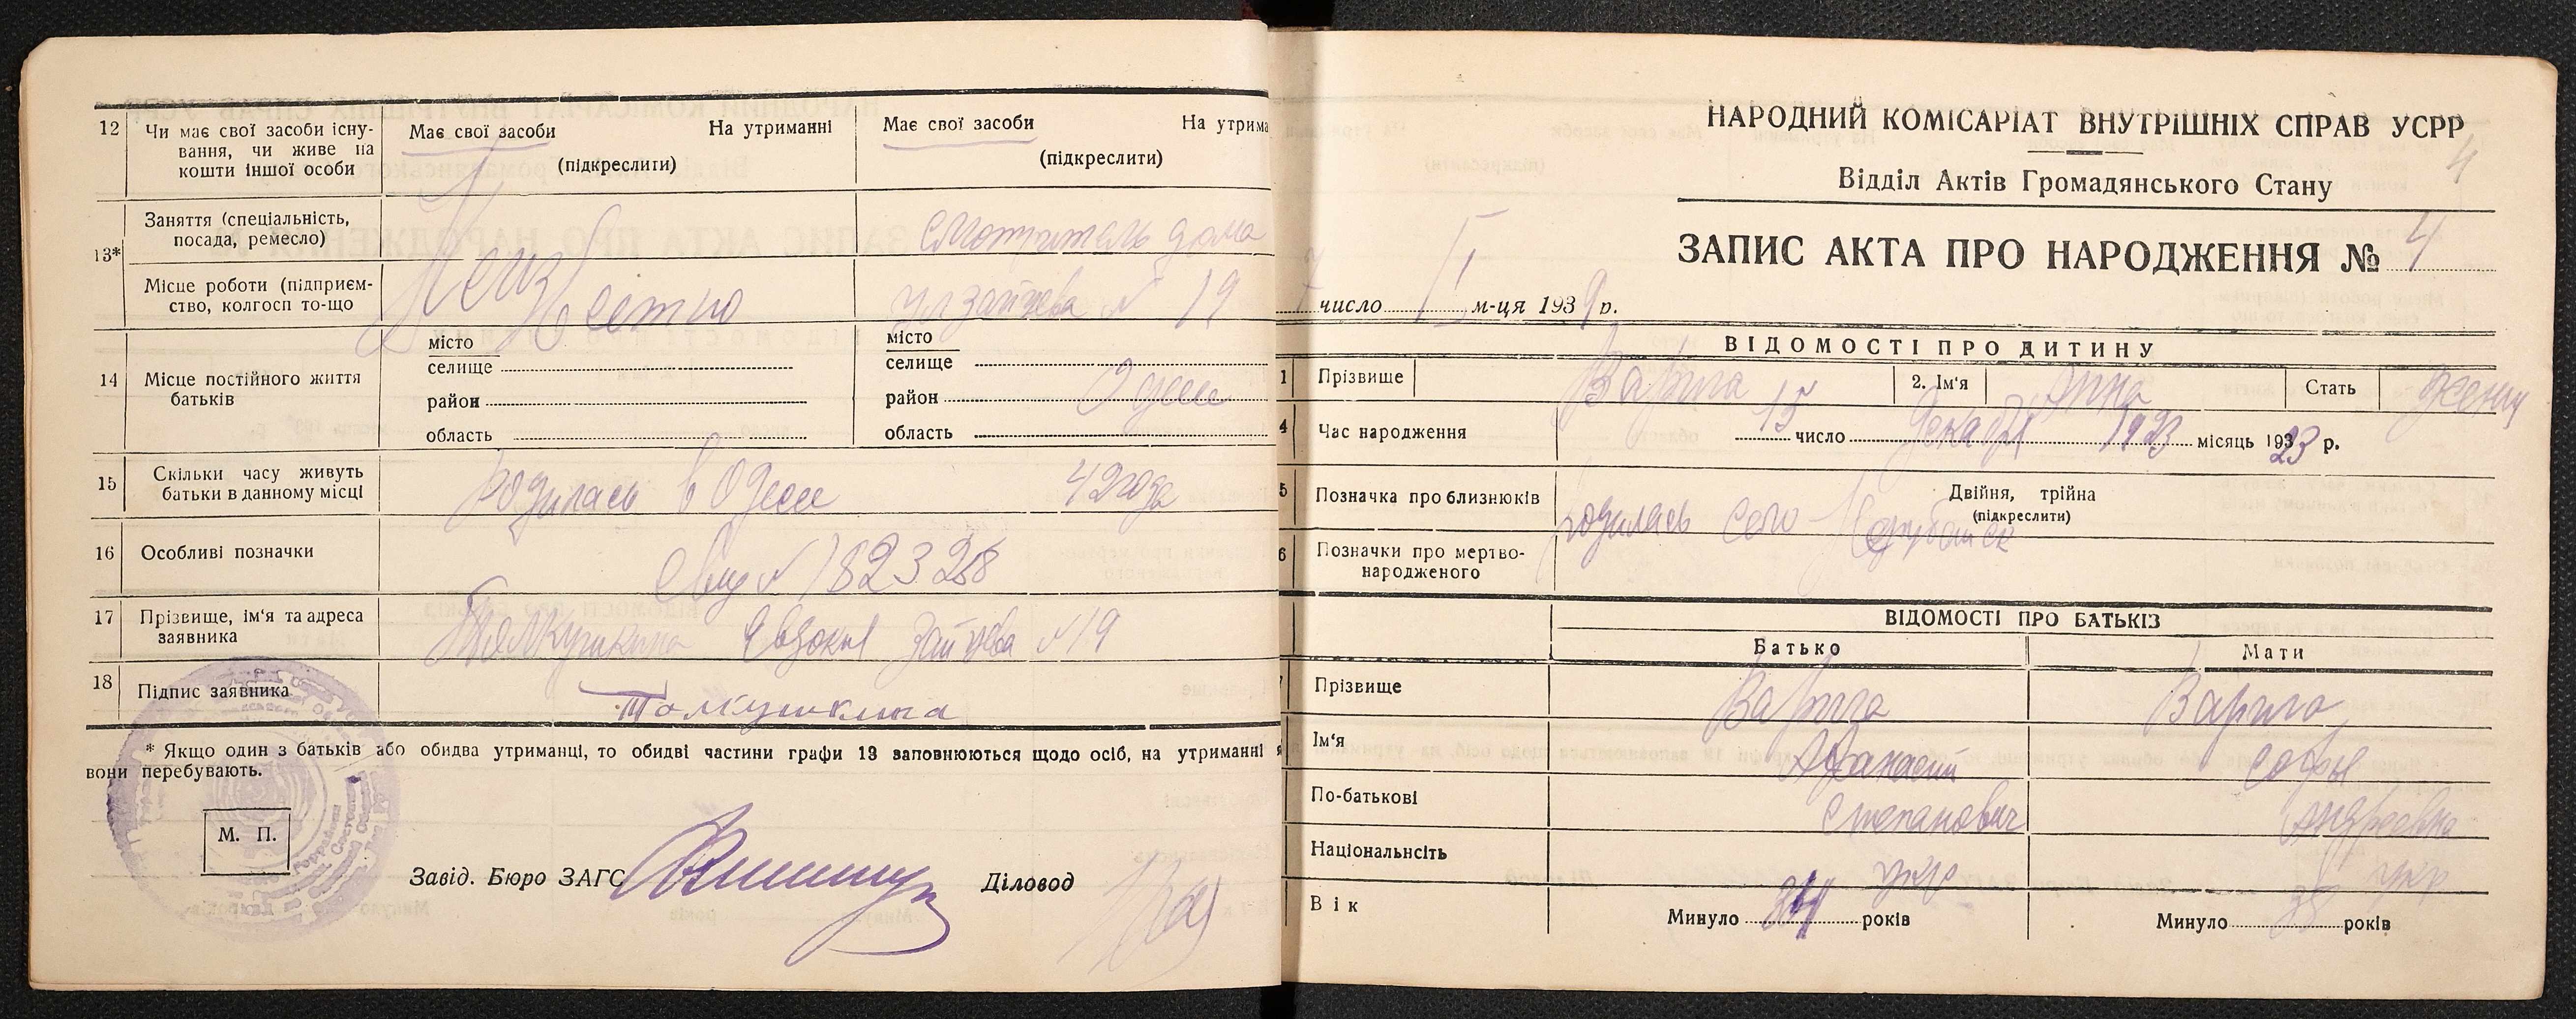 12
Чи має свої засоби існу-
вання, чи живе на
кошти іншої особи
Має свої засоби На утриманні
(підкреслити)
Має свої засоби На утрима
(підкреслити)
13*
Заняття (спеціальність,
посада, ремесло)
смотритель дома
Місце роботи (підприєм-
ство, колгосп то-що
Неизвестно
ул зайцева № 19
14
Місце постійного життя
батьків
місто
селище
район
область
місто
селище
район Одесс
область
15
Скільки часу живуть
батьки в данному місці
родилась в Одессе 42 года
16
Особливі позначки
Свид № 182328
17
Прізвище, ім'я та адреса
заявника
Толкушкина Евдокия Зайцева № 19
18
Підпис заявника
Толкушкина
* Якщо один з батьків або обидва утриманці, то обидві частини графи 13 заповнюються щодо осіб, на утриманні я
вони перебувають.
М. П.
Завід. Бюро ЗАГС
Діловод
НАРОДНИЙ КОМІСАРІАТ ВНУТРІШНІХ СПРАВ УСРР
4
Відділ Актів Громадянського Стану
ЗАПИС АКТА ПРО НАРОДЖЕННЯ № 4
7 число I м-ця 1939 р.
ВІДОМОСТІ ПРО ДИТИНУ
1 Прізвище Варига 2. Ім'я Анна Стать женщ
4 Час народження 15 число декабря 1923 місяць 1923 р.
5 Позначка про близнюків
Двійня, трійня
(підкреслити)
родилась село
6 Позначки про мертво-
народженого
ВІДОМОСТІ ПРО БАТЬКІВ
Батько Мати
7 Прізвище Варига Варига
Ім'я Афанасий Софья
По-батькові Степанович Андреевна
Національнсіть укр укр
Вік Минуло років Минуло років